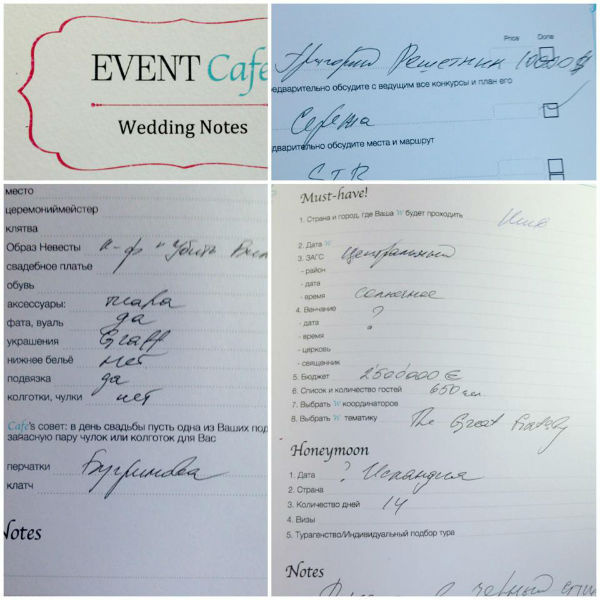 EVENT Cafe
Wedding Notes
Price Done
Григорий Решетник 10000 $
едварительно обсудите с ведущим все конкурсы и план его
Сережа
дварительно обсудите места и маршрут
место
церемониймейстер
клятва
Образ Невесты к-ф "Убить Билл
свадебное платье
обувь
аксессуары: тиара
фата, вуаль да
украшения Graff
нижнее бельё нет
подвязка да
колготки, чулки нет
Cafe's совет: в день свадьбы пусть одна из Ваших под
запасную пару чулок или колготок для Вас
перчатки
клатч
Notes
Must-have!
1. Страна и город, где Ваша W будет проходить
2. Дата W
3. ЗАГС Центральный
- район
- дата
- время солнечное
4. Венчание ?
- дата
- время
- церковь
- священник
5. Бюджет 2500000 €
6. Список и количество гостей 650 чел.
7. Выбрать W координаторов
8. Выбрать W тематику The Great Gatsby
Honeymoon
1. Дата ? Исландия
2. Страна
3. Количество дней 14
4. Визы
5. Турагенство/Индивидуальный подбор тура
Notes